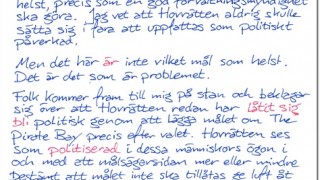 helst, precis som en god förvaltningsmyndighet
ska göra. Jag vet att Hovrätten aldrig skulle
sätta sig i fara att uppfattas som politiskt
påverkad.
Men det här är inte vilket mål som helst.
Det är det som är problemet.
Folk kommer fram till mig på stan och beklagar
sig över att Hovrätten redan har låtit sig
bli politisk genom att lägga målet om The
Pirate Bay precis efter valet. Hovrätten ses
som politiserad i dessa människors ögon i
och med att målsägarsidan mer eller mindre
bestämt att målet inte ska tillåtas ge luft åt